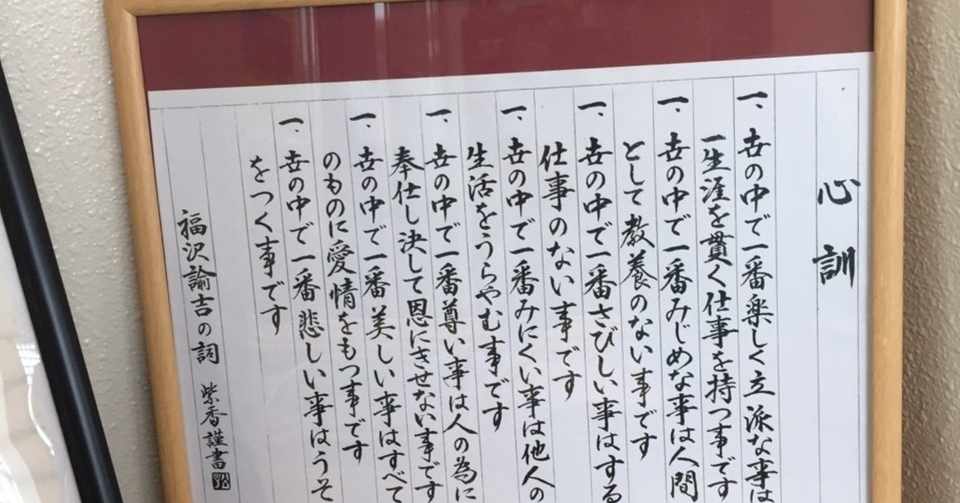 心訓
一、世の中で一番楽しく立派な事は
一生涯を貫く仕事を持つ事です
一、世の中で一番みじめな事は人間
として教養のない事です
一、世の中で一番さびしい事はする
仕事のない事です
一、世の中で一番みにくい事は他人の
生活をうらやむ事です
一、世の中で一番尊い事は人の為に
奉仕し決して恩にきせない事です
一、世の中で一番美しい事はすべて
のものに愛情をもつ事です
一、世の中で一番悲しい事はうそ
をつく事です
福沢諭吉の詞 紫香謹書